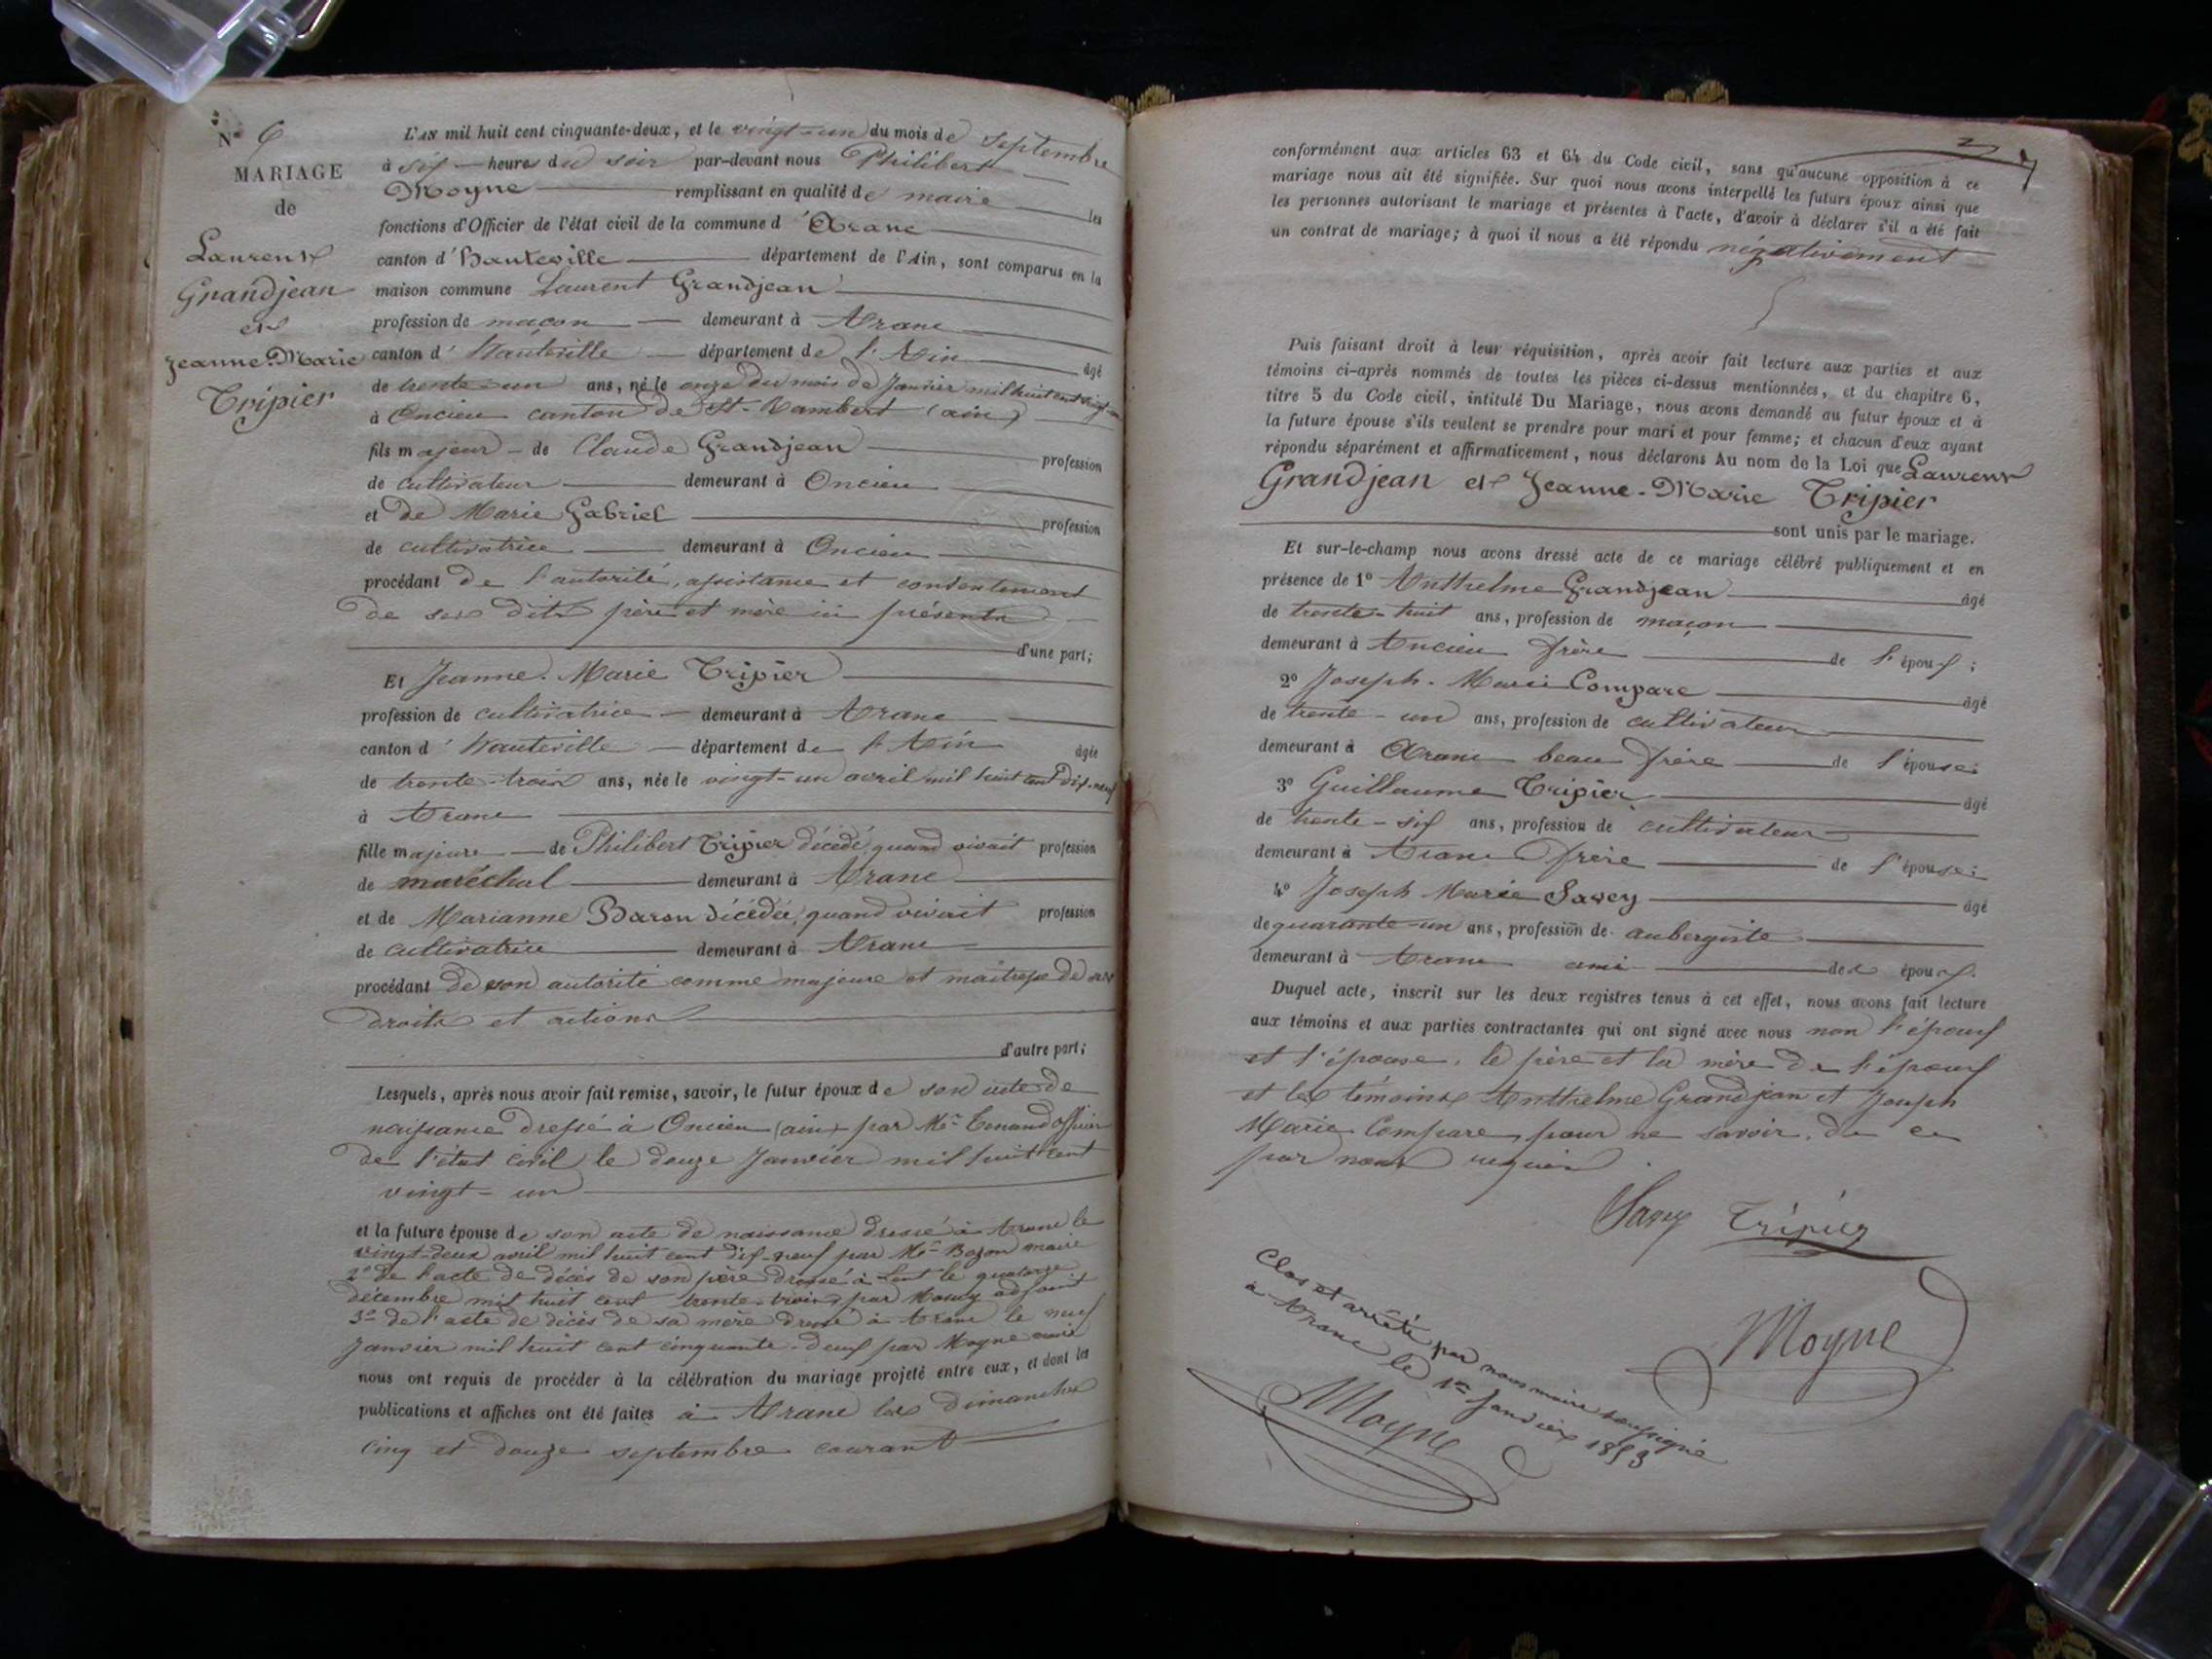 N° 6
MARIAGE
de
Laurent
Grandjean
et
Jeanne-Marie
Tripier
L'AN mil huit cent cinquante-deux, et le vingt-un du mois de Septembre
à six heures du soir par-devant nous Philibert
Moyne remplissant en qualité de maire les
fonctions d'Officier de l'état civil de la commune d'Aranc
canton d'Hauteville département de l'Ain, sont comparus en la
maison commune Laurent Grandjean
profession de maçon demeurant à Aranc
canton d'Hauteville département de l'Ain âgé
de trente-un ans, né le onze du mois de Janvier mil huit cent vingt-un
à Oncieu canton de St-Rambert (ain)
fils majeur de Claude Grandjean profession
de cultivateur demeurant à Oncieu
et de Marie Gabriel profession
de cultivatrice demeurant à Oncieu
procédant de l'autorité, assistance et consentement
de ses dits père et mère ici présents
d'une part;
Et Jeanne-Marie Tripier
profession de cultivatrice demeurant à Aranc
canton d'Hauteville département de l'Ain âgée
de trente-trois ans, née le vingt-un avril mil huit cent dix-neuf
à Aranc
fille majeure de Philibert Tripier décédé, quand vivait profession
de maréchal demeurant à Aranc
et de Marianne Baron décédée, quand vivait profession
de cultivatrice demeurant à Aranc
procédant de son autorité comme majeure et maîtresse de ses
droits et actions
d'autre part;
Lesquels, après nous avoir fait remise, savoir, le futur époux de son acte de
naissance dressé à Oncieu (ain) par Mr Tenand officier
de l'état civil le douze Janvier mil huit cent
vingt-un
et la future épouse de son acte de naissance dressé à Aranc le
vingt-deux avril mil huit cent dix-neuf par Mr Bozon maire
2° de l'acte de décès de son père dressé à le quatorze
décembre mil huit cent trente-trois par adjoint
3° de l'acte de décès de sa mère dressé à Aranc le neuf
Janvier mil huit cent cinquante-deux par Moyne maire
nous ont requis de procéder à la célébration du mariage projeté entre eux, et dont les
publications et affiches ont été faites à Aranc les dimanches
cinq et douze septembre courant
conformément aux articles 63 et 64 du Code civil, sans qu'aucune opposition à ce
mariage nous ait été signifiée. Sur quoi nous avons interpellé les futurs époux ainsi que
les personnes autorisant le mariage et présentes à l'acte, d'avoir à déclarer s'il a été fait
un contrat de mariage; à quoi il nous a été répondu négativement
Puis faisant droit à leur réquisition, après avoir fait lecture aux parties et aux
témoins ci-après nommés de toutes les pièces ci-dessus mentionnées, et du chapitre 6,
titre 5 du Code civil, intitulé Du Mariage, nous avons demandé au futur époux et à
la future épouse s'ils veulent se prendre pour mari et pour femme; et chacun d'eux ayant
répondu séparément et affirmativement, nous déclarons Au nom de la Loi que Laurent
Grandjean et Jeanne-Marie Tripier
sont unis par le mariage.
Et sur-le-champ nous avons dressé acte de ce mariage célébré publiquement et en
présence de 1° Anthelme Grandjean âgé
de trente-huit ans, profession de maçon
demeurant à Oncieu frère de l'époux;
2° Joseph-Marie Compare âgé
de trente-un ans, profession de cultivateur
demeurant à Aranc beau frère de l'épouse;
3° Guillaume Tripier âgé
de trente-six ans, profession de cultivateur
demeurant à Aranc frère de l'épouse;
4° Joseph Marie Savey âgé
de quarante-un ans, profession de aubergiste
demeurant à Aranc ami des époux.
Duquel acte, inscrit sur les deux registres tenus à cet effet, nous avons fait lecture
aux témoins et aux parties contractantes qui ont signé avec nous non l'époux
et l'épouse, le père et la mère de l'époux
et les témoins Anthelme Grandjean et Joseph
Marie Compare, pour ne savoir, de ce
par nous requis.
Savey Tripier
Moyne
Clos et arrêté par nous maire soussigné
à Aranc le 1er Janvier 1853
Moyne